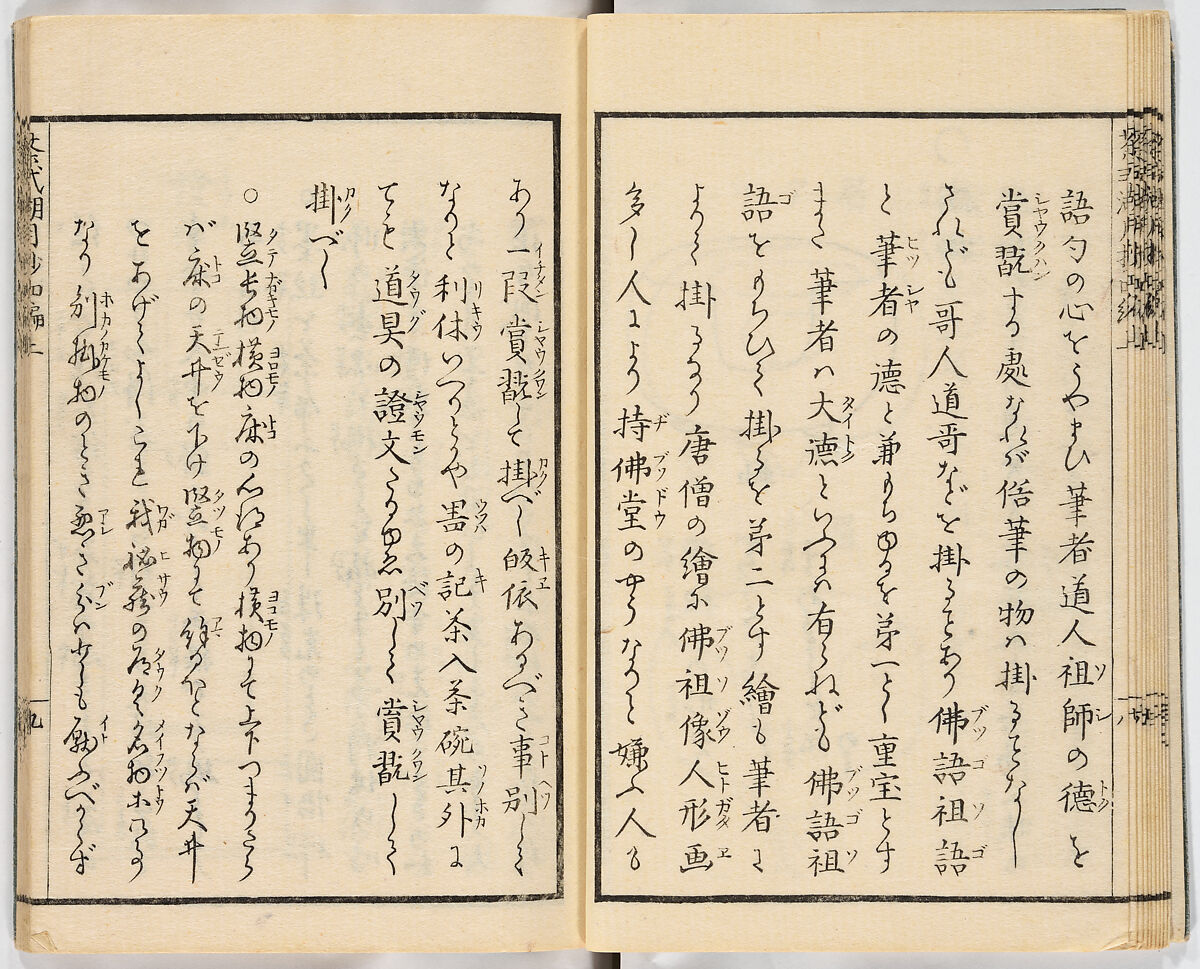 語句の心をうやまひ筆者道人祖師の徳を
賞翫する處なれば俗筆の物ハ掛ることなし
されども哥人道哥などを掛ることあり佛語祖語
と筆者の徳と兼もちゆるを第一とし重宝とす
また筆者ハ大徳といふにハ有らねども佛語祖
語をもちひて掛るを第二とす繪も筆者に
よりて掛るなり唐僧の繪に佛祖像人形画
多し人により持佛堂のやうなりと嫌ふ人も
あり一段賞翫して掛べし皈依あるべき事別して
なりと利休いへりとかや噐の記茶入茶碗其外に
ても道具の證文たるゆゑ別して賞翫して
掛べし
○竪長物横物床の心得あり横物にて上下つまりたら
バ床の天井を下け竪物にて餘るほどならバ天井
をあげてよしこれ我祕蔵の道具名物等の
なり別掛物のとき悪き分ハ少も厭ふべからず
茶式湖月抄四編上
九